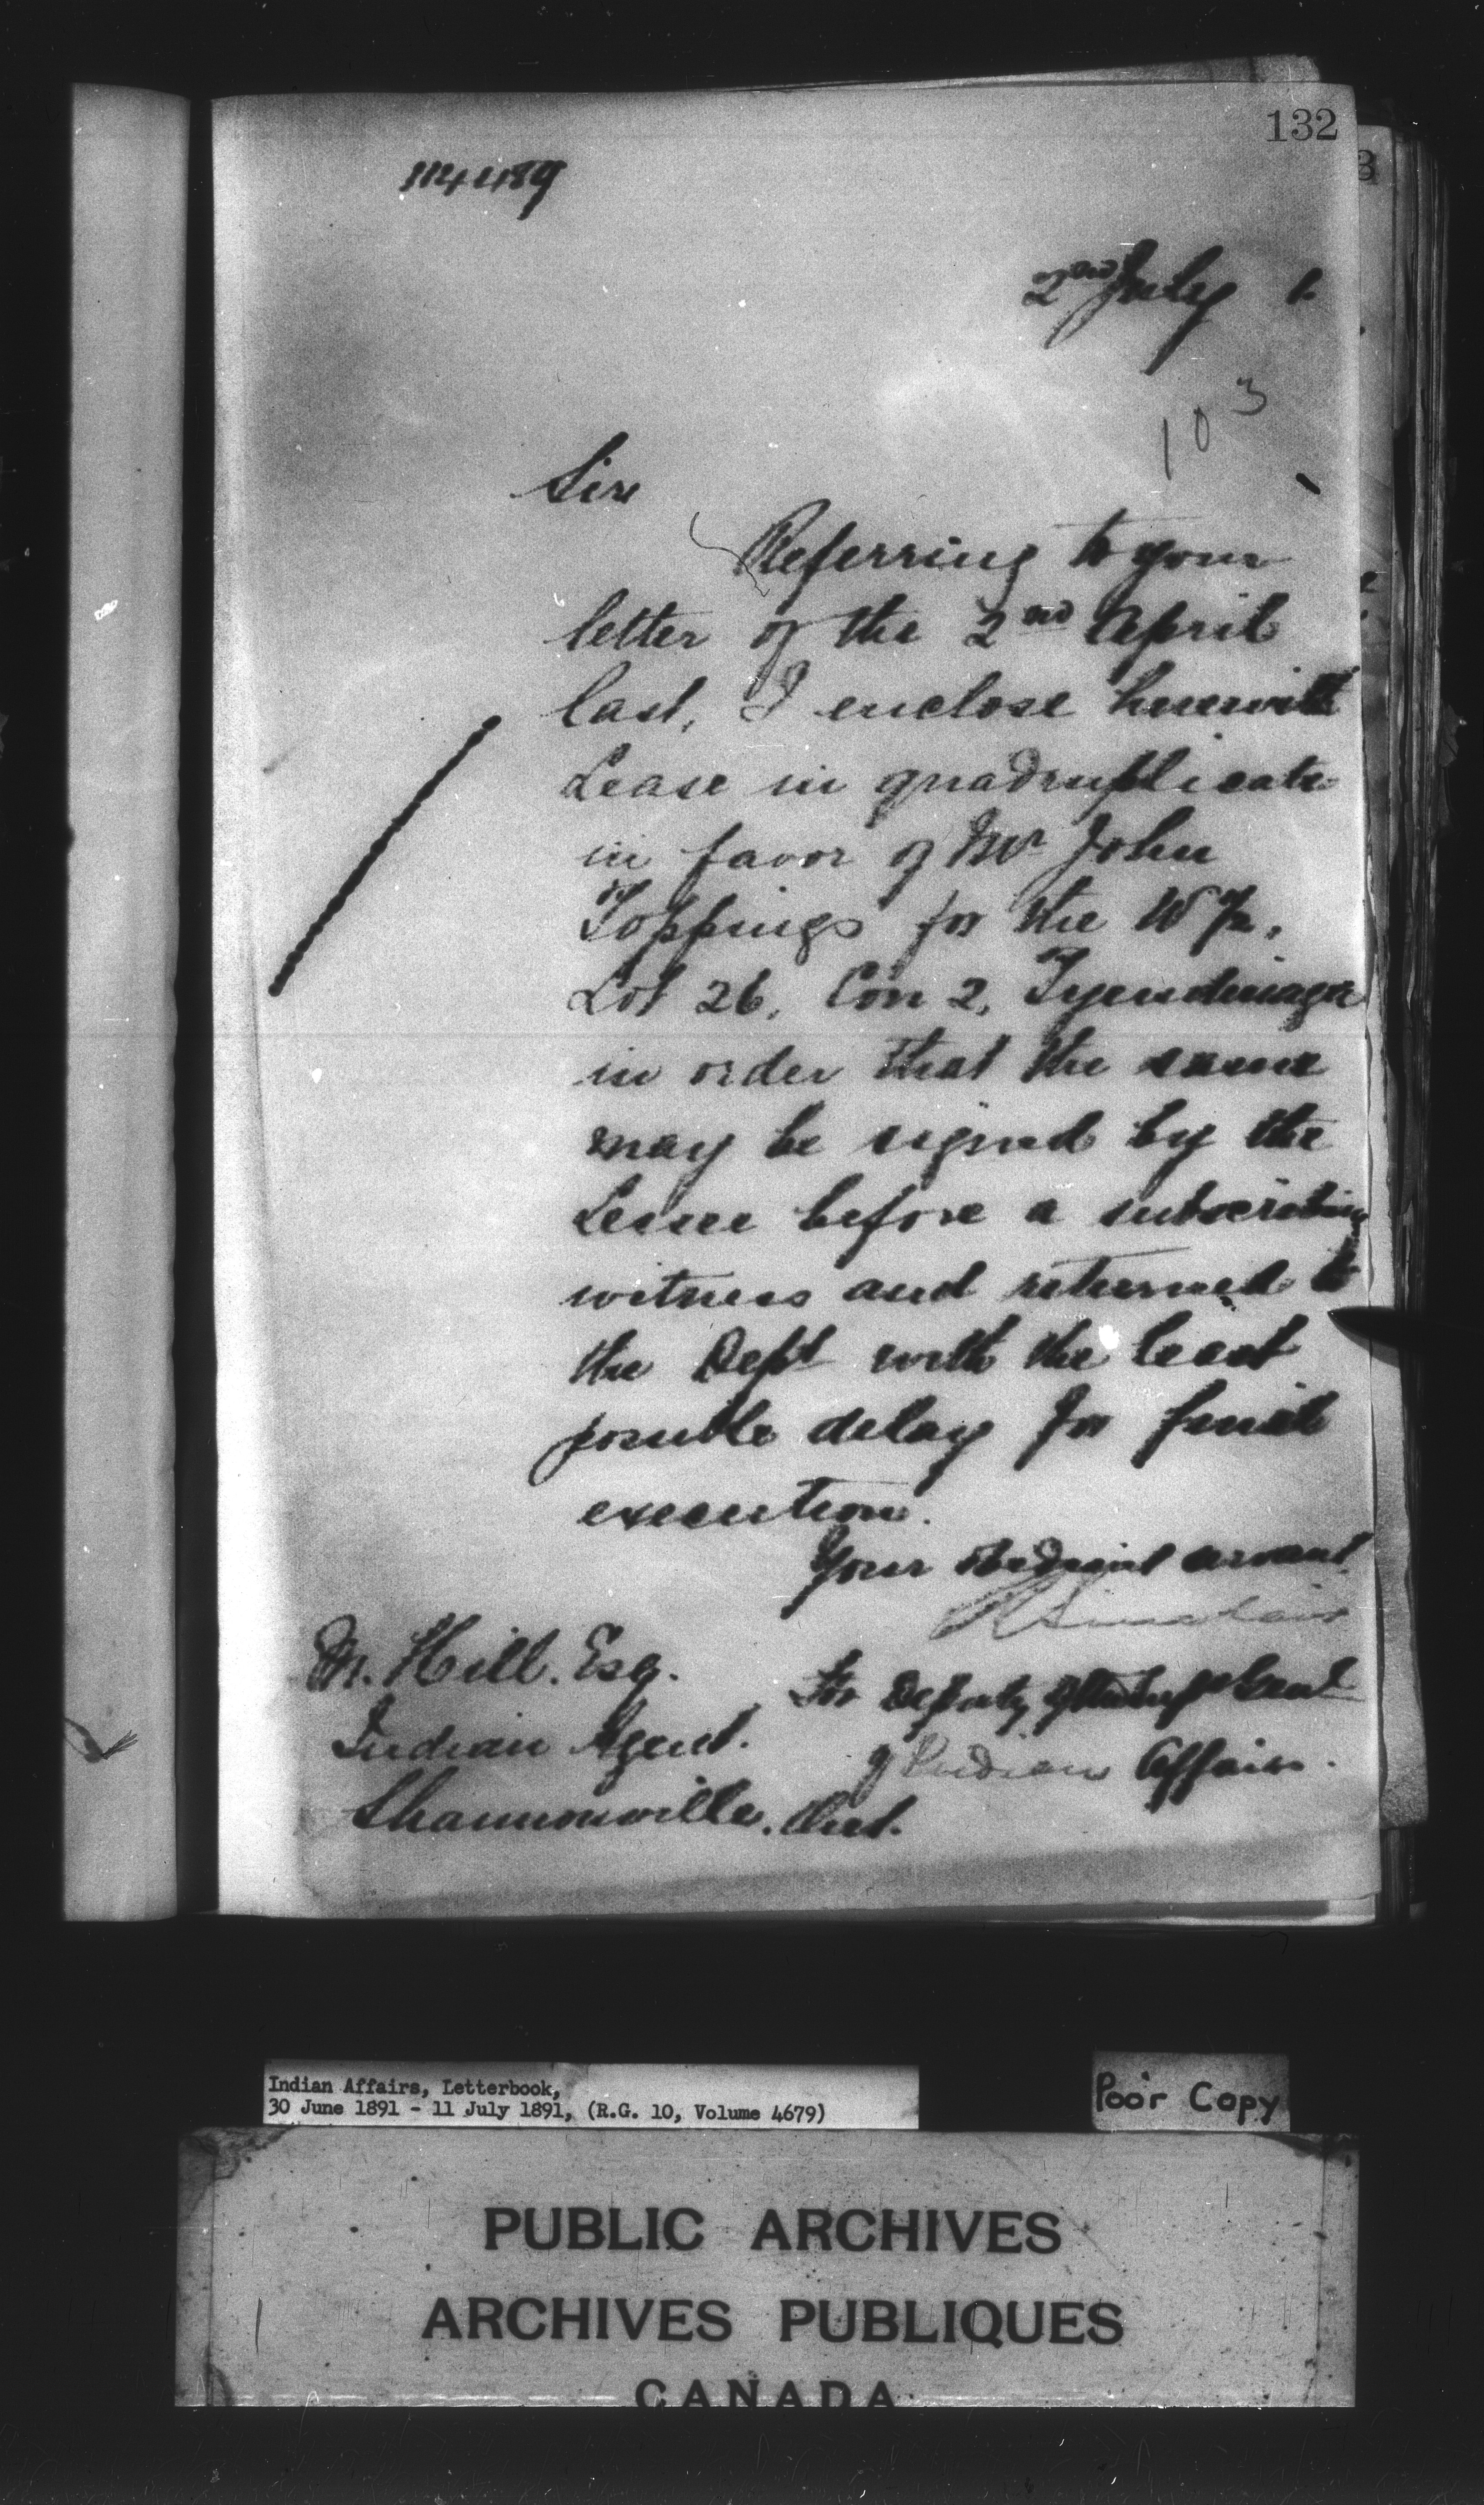 132
114489
2nd July 1.
103
Sir
Referring to your
letter of the 2nd April
last, I enclose herewith
Lease in quadruplicate
in favor of Mr John
Toppings for the W ½,
Lot 26, Con 2, Tyendinaga
in order that the same
may be signed by the
Lessee before a subscribing
witness and returned to
the Dept with the least
possible delay for final
execution.
Your obedient servant
M. Hill. Esq.
for Deputy of the Supt Genl
Indian Agent.
of Indian Affairs.
Shannonville. Ont.
Indian Affairs, Letterbook,
30 June 1891 - 11 July 1891, (R.G. 10, Volume 4679)
Poor Copy
PUBLIC ARCHIVES
ARCHIVES PUBLIQUES
CANADA